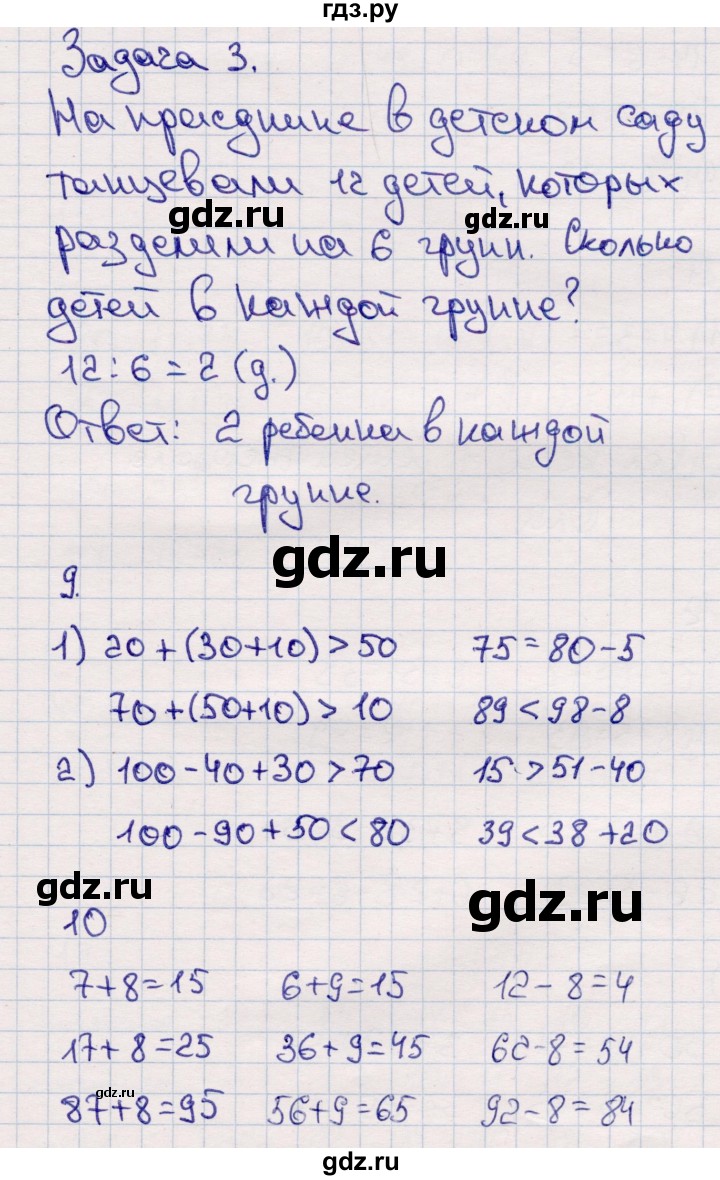 гдз.ру
Задача 3.
На празднике в детском саду
танцевали 12 детей, которых
gdz.ru gdz.ru
разделили на 6 групп. Сколько
детей в каждой группе?
12:6=2 (д.)
Ответ: 2 ребенка в каждой
группе.
gdz.ru
9.
1) 20+(30+10)>50 75=80-5
70+(50+10)>10 89<98-8
2) 100-40+30>70 15>51-40
100-90+50<80 39<38+20
gdz.ru gdz.ru
10
7+8=15 6+9=15 12-8=4
17+8=25 36+9=45 62-8=54
gdz.ru
87+8=95 56+9=65 92-8=84
gdz.ru